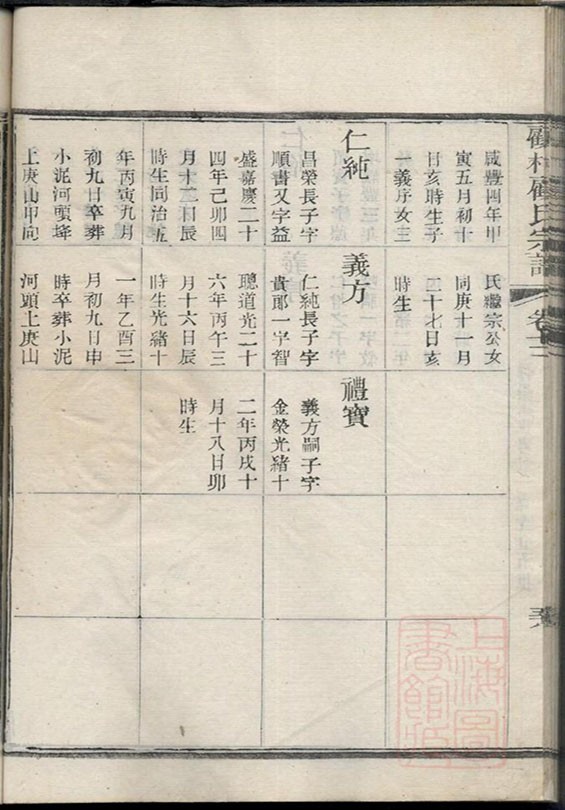 氏宗譜
咸豐四年甲
寅五月初十
日亥時生子
一義序女三
氏繼宗公女
同庚十一月
二十七日亥
時生
仁純
昌榮長子字
順書又字益
盛嘉慶二十
四年己卯四
月十二日辰
時生同治五
年丙寅九月
初九日卒葬
小泥河頭埄
上庚山甲向
義方
仁純長子字
貴郞一字智
聰道光二十
六年丙午三
月十六日辰
時生光緒十
一年乙酉三
月初九日申
時卒葬小泥
河頭上庚山
禮寶
義方嗣子字
金榮光緒十
二年丙戌十
月十八日卯
時生
上海圖
書館藏